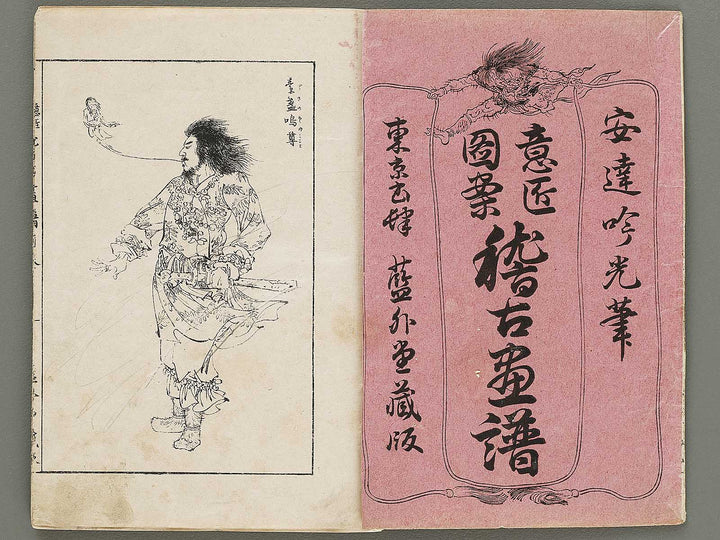 安達吟光筆
意匠
圖案
稽古畫譜
東京書肆 藍外堂藏版
素盞嗚尊